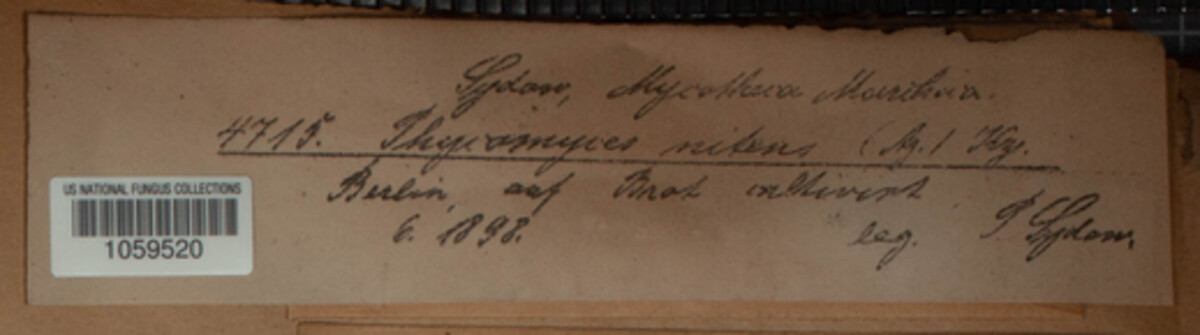 Sydow, Mycotheca Marchica.
4715. Phycomyces nitens (Ag.) Kze.
Berlin, auf Brot cultivirt
6. 1898. leg. P Sydow.
US NATIONAL FUNGUS COLLECTIONS
1059520